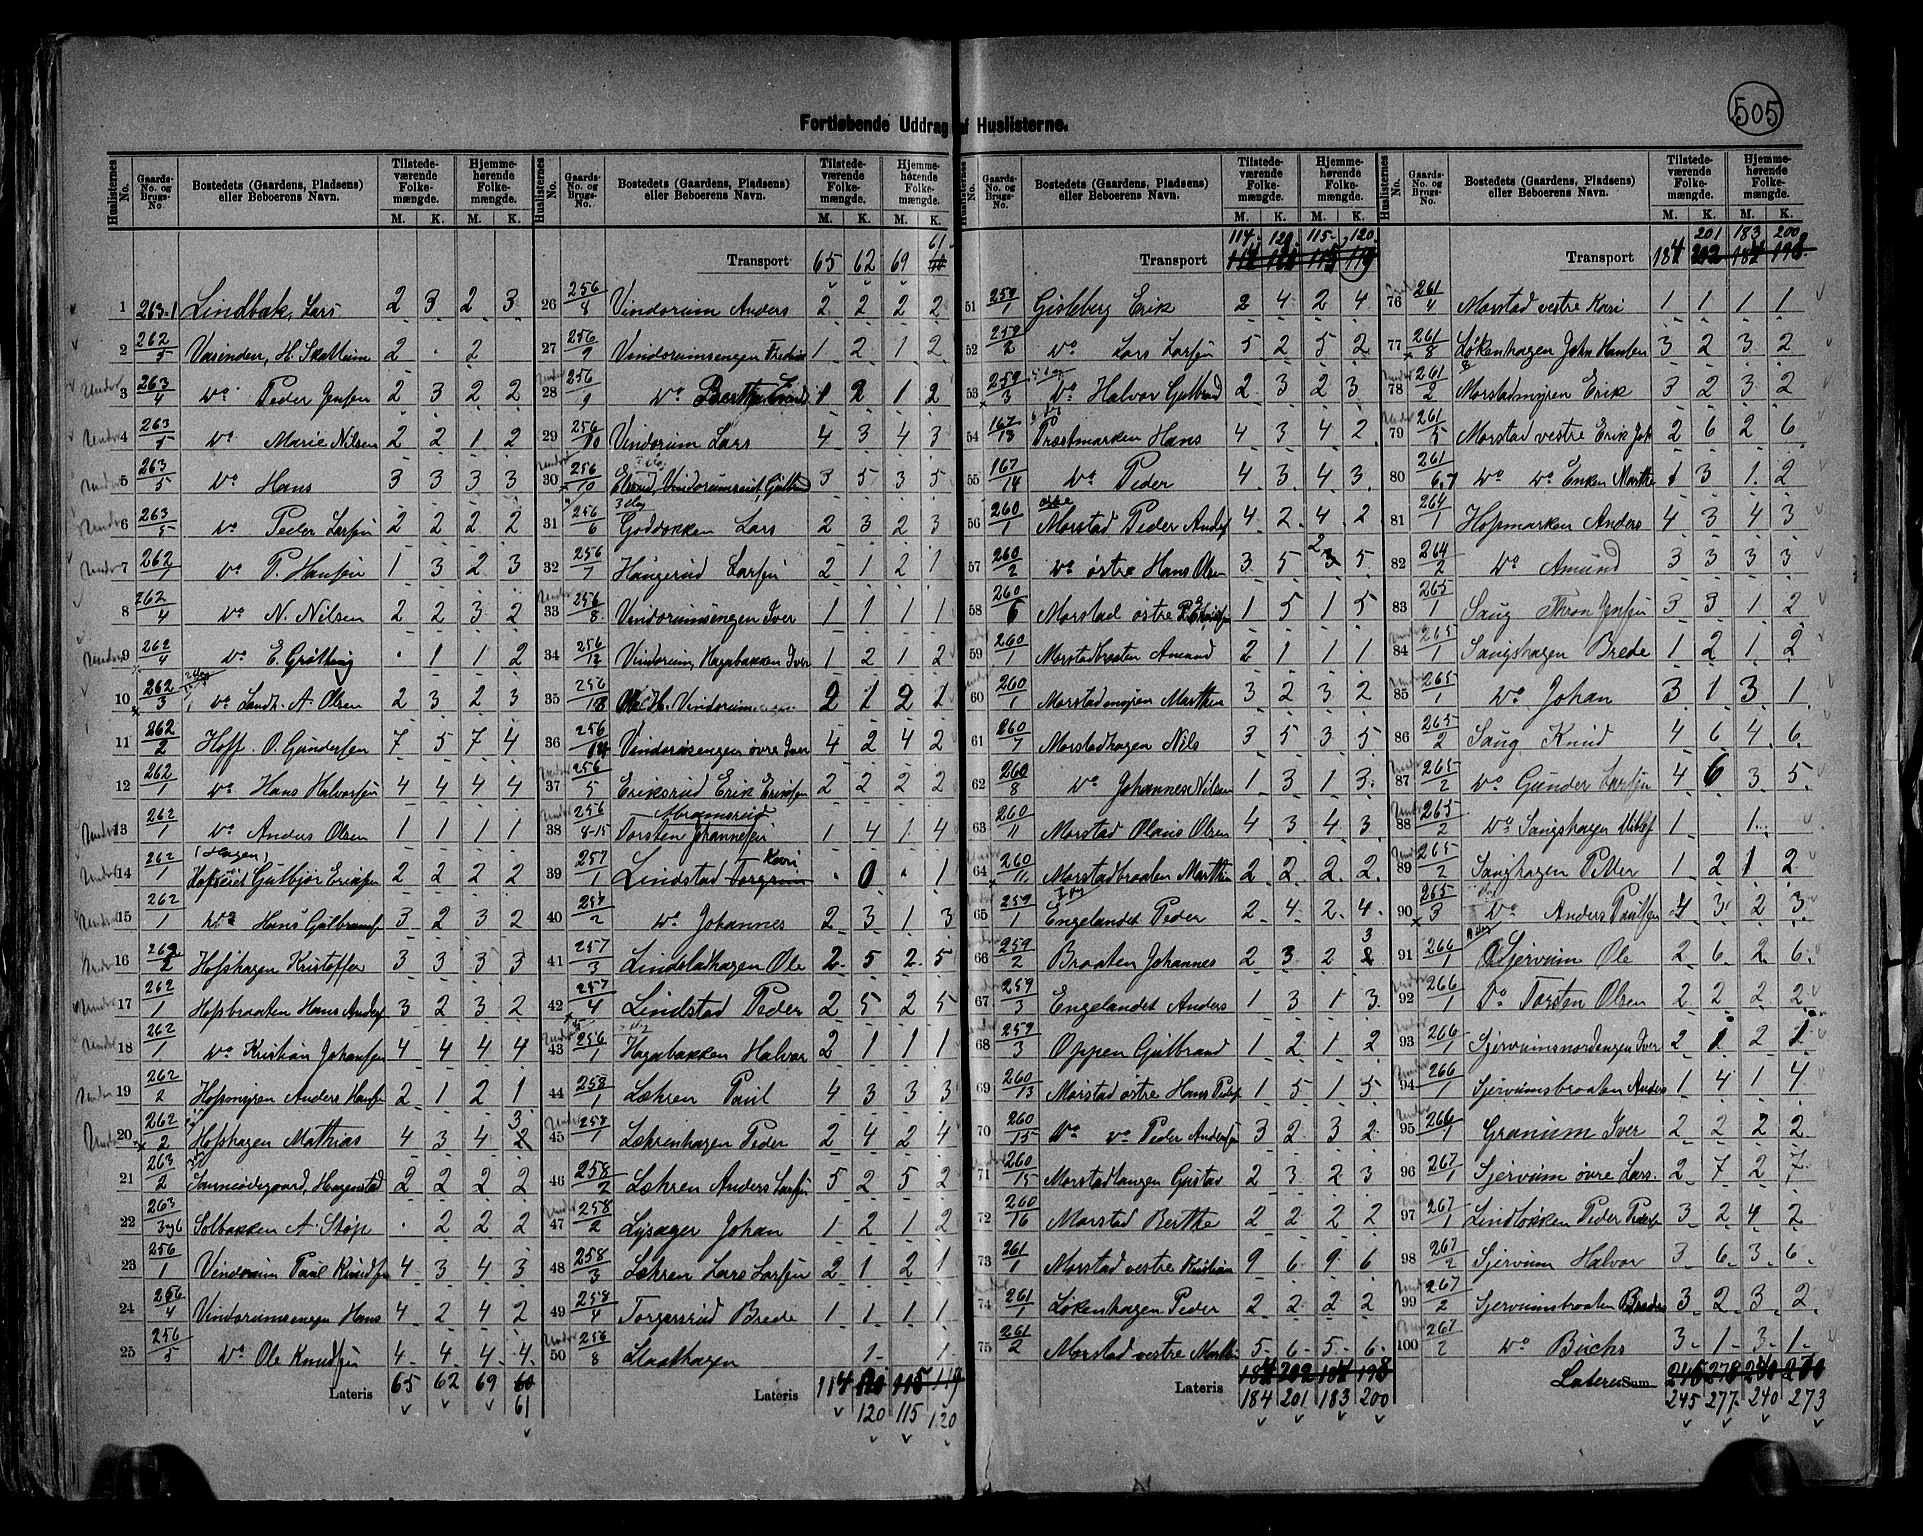 505
Fortløbende Uddrag af Huslisterne.
Huslisternes No. | Gaards-No. og Brugs-No. | Bostedets (Gaardens, Pladsens) eller Beboerens Navn. | Tilstedeværende Folkemængde. M. K. | Hjemmehørende Folkemængde. M. K.
1 263-1 Lindbak, Lars 2 3 2 3
2 262/5 Vasenden, H. Skattum 2 . 2
3 263/4 Do Peder Jensen 2 3 2 2
4 263/5 Do Marie Nilsen 2 2 1 2
5 263/5 Do Hans 3 3 3 3
6 263/5 Do Peder Larsen 2 2 2 2
7 262/1 Do P. Hansen 1 3 2 3
8 262/4 Do N. Nilsen 2 2 3 2
9 262/4 Do E. Grøtting . 1 1 2
10 262/3 Do Landh. A. Olsen 2 3 2 3
11 262/2 Hoff. O. Gundersen 7 5 7 4
12 262/1 Do Hans Halvorsen 4 4 4 4
13 262/1 Do Anders Olsen 1 1 1 1
14 262/1 (Hagen) Gulbjør Eriksen 2 2 2 2
15 262/1 Do Hans Gulbrands 3 2 3 2
16 262/2 Hofshagen Kristoffer 3 3 3 3
17 262/1 Hofsbraaten Hans Anders 3 2 3 2
18 262/1 Do Kristian Johansen 4 4 4 4
19 262/2 Hofsmyren Anders Hansen 2 1 2 1
20 262/2 Hofshagen Mathias 4 3 4 3
21 263/2 Hagenstad 2 2 2 2
22 263/3og6 Solbakken A. Støp . 2 2 2
23 256/1 Vindorum Paul Knudsen 4 3 4 3
24 256/4 Vindorumsengen Hans 4 2 4 2
25 256/5 Do Ole Knudsen 4 4 4 4
Lateris 65 62 69 60
61
Transport 65 62 69 61
26 256/8 Vindorum Anders 2 2 2 2
27 256/9 Vindorumsengen Fredrik 1 2 1 2
28 256/9 Do Berthe 1 2 1 2
29 256/10 Vindorum Lars 4 3 4 3
30 256/10 Vindorumseiet Gulbrand 3 5 3 5
31 256/6 Goddokken Lars 2 3 2 3
32 256/7 Haugerud Larsen 2 1 2 1
33 256/8 Vindorumsengen Iver 1 1 1 1
34 256/12 Vindorum, Hagabakken Iver 1 2 1 2
35 256/18 Ole H. Vindorumsengen 2 1 2 1
36 256/14 Vindorumsengen øvre Iver 4 2 4 2
37 256/5 Eriksrud Erik Eriksen 2 2 2 2
38 256/8-15 Abramsrud Torsten Johannesen 1 4 1 4
39 257/1 Lindstad Kari . 0 . 1
40 257/2 Do Johannes 2 3 1 3
41 257/3 Lindstadhagen Ole 2 5 2 5
42 257/4 Lindstad Peder 2 5 2 5
43 256/1 Hagabakken Halvor 2 1 1 1
44 258/1 Læhren Paul 4 3 3 3
45 257/1 Læhrenhagen Peder 2 4 2 4
46 258/2 Læhren Anders Larsen 5 2 5 2
47 258/2 Lysager Johan 1 2 1 2
48 258/3 Læhren Lars Larsen 2 1 2 1
49 258/4 Torgersrud Brede 1 1 1 1
50 256/8 Staathagen 1 1
Lateris 114 120 115 119
120 115 120
Transport 114 120 115 120
51 259/1 Gisleberg Erik 2 4 2 4
52 259/2 Do Lars Larsen 5 2 5 2
53 259/3 Do Halvor Gulbrand 2 3 2 3
54 167/13 Præstmarken Hans 4 3 4 2
55 167/14 Do Peder 4 3 4 3
56 260/1 Morstad Peder Anders 4 2 4 2
57 260/2 Do østre Hans Olsen 3 5 2 5
58 260/6 Morstad østre P. 1 5 1 5
59 260/1 Morstadbraaten Amund 2 1 1 1
60 260/1 Morstadmyren Marthin 3 2 3 2
61 260/7 Morstadhagen Nils 3 5 3 5
62 260/8 Do Johannes Nilsen 1 3 1 3
63 260/11 Morstad Olaus Olsen 4 3 4 3
64 260/11 Morstadbraaten Marthin 2 2 2 2
65 259/1 Engelandet Peder 2 4 2 4
66 259/2 Braaten Johannes 2 3 2 3
67 259/3 Engelandet Anders 1 3 1 3
68 259/3 Oppen Gulbrand 1 2 1 2
69 260/13 Morstad østre Hans Peders 1 5 1 5
70 260/15 Do Do Peder Andersen 3 2 3 2
71 260/15 Morstadlangen Gustav 2 3 2 3
72 260/16 Morstad Berthe 2 2 2 2
73 261/1 Morstad vestre Kristian 9 6 9 6
74 261/1 Løkenhagen Peder 2 2 2 2
75 261/2 Morstad vestre Marthin 5 6 5 6
Lateris 184 202 184 198
184 201 183 200
Transport 184 201 183 200
76 261/4 Morstad vestre Kari 1 1 1 1
77 261/8 Løkenhagen John Hansen 3 2 3 2
78 261/2 Morstadmyren Erik 3 2 3 2
79 261/5 Morstad vestre Erik Joh 2 6 2 6
80 261/6,7 Do Do Enken Marthe 1 3 1 2
81 264/1 Hofmarken Anders 4 3 4 3
82 264/2 Do Amund 3 3 3 3
83 265/1 Saug Thron Jensen 3 3 1 2
84 265/1 Saugshagen Brede 1 2 1 2
85 265/1 Do Johan 3 1 3 1
86 265/2 Saug Knud 4 6 4 6
87 265/2 Do Gunder Larsen 4 6 3 5
88 265/2 Do Saugshagen 1 1
89 265/2 Saughagen Peder 1 2 1 2
90 265/3 Do Anders Paulsen 4 3 2 3
91 266/1 Sjervum Ole 2 6 2 6
92 266/1 Do Torsten Olsen 2 2 2 2
93 266/1 Sjervumsnordengen Iver 2 1 2 1
94 266/1 Sjervumsbraaten Anders 1 4 1 4
95 266/1 Granum Iver 2 2 2 2
96 267/1 Sjervum øvre Lars 2 7 2 7
97 267/1 Lindløkken Peder Peders 3 2 4 2
98 267/2 Sjervum Halvor 3 6 3 6
99 267/2 Sjervumsbraaten Brede 3 2 3 2
100 267/2 Do Buchs 3 1 3 1
Lateris Sum 245 278 240 270
245 277 240 273